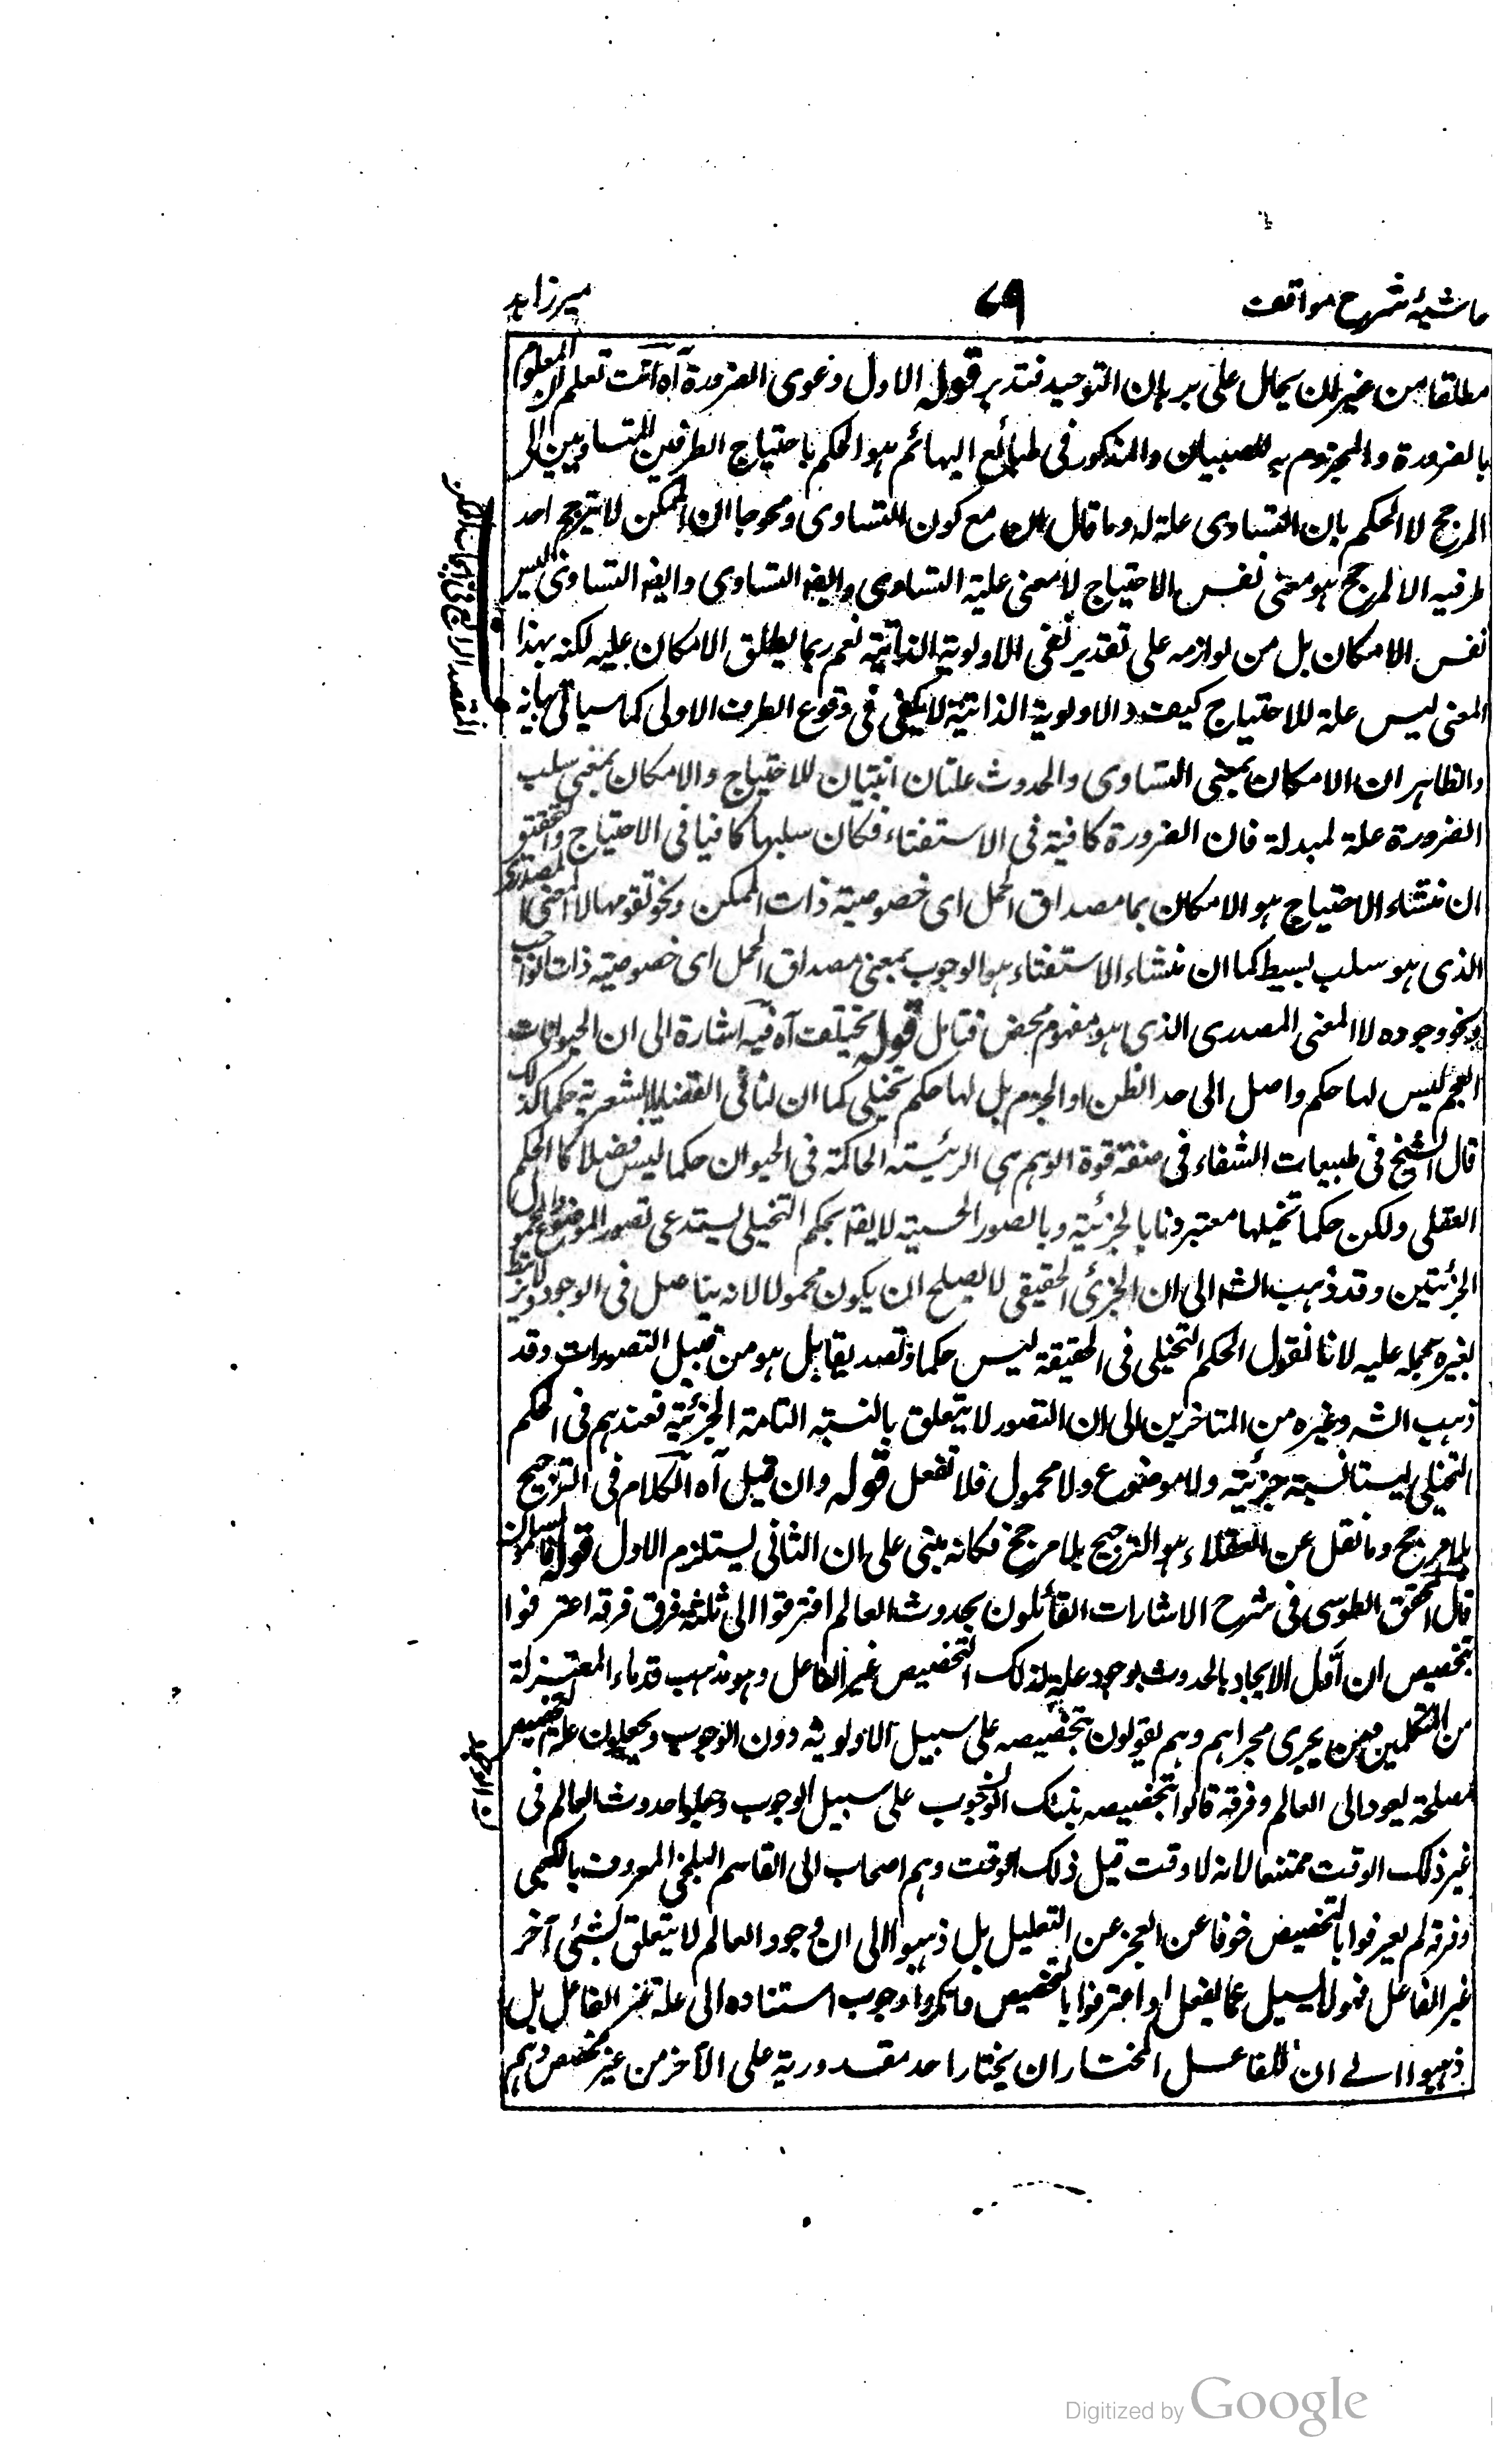 حاشیۂ شرح مواقف ٦٩ میرزاہد
مطلقا من غير ان يحال على برهان التوحيد فتدبر قوله الاول دعوى الضرورة آه انت تعلم ان المعلوم
بالضرورة والمجزوم به للصبيان والمذكور فى طبائع البهائم هو الحكم باحتياج الطرفين المتساويين الى
المرجح لا الحكم بان التساوى علة له وما قال ان مع كون التساوى محوجا ان الممكن لا يترجح احد
طرفيه الا لمرجح هو معنى نفس الاحتياج لا معنى علية التساوى وايضا التساوى ليس
نفس الامكان بل من لوازمه على تقدير نفى الاولوية الذاتية نعم ربما يطلق الامكان عليه لكنه بهذا
المعنى ليس علة للاحتياج كيف والاولوية الذاتية لا يكفى فى وقوع الطرف الاولى كما سياتى بيانه
والظاهر ان الامكان بمعنى التساوى والحدوث علتان للاحتياج والامكان بمعنى سلب
الضرورة علة لمبدلة فان الضرورة كافية فى الاستغناء فكان سلبها كافيا فى الاحتياج والتحقيق
ان منشاء الاحتياج هو الامكان بما مصداق الحمل اى خصوصية ذات الممكن ونحو تقومها لا المعنى المصدرى
الذى هو سلب بسيط كما ان منشاء الاستغناء هو الوجوب بمعنى مصداق الحمل اى خصوصية ذات الواجب
ونحو وجوده لا المعنى المصدرى الذى هو مفهوم محض فتامل قوله يختلف آه فيه اشارة الى ان الحيوانات
العجم ليس لها حكم واصل الى حد الظن او الجزم بل لها حكم تخيلى كما ان لنا فى القضايا الشعرية حكما كذلك
قال الشيخ فى طبيعيات الشفاء فى قوة الوهم هى الرئيسة الحاكمة فى الحيوان حكما ليس فصلا كالحكم
العقلى ولكن حكما تخيلها مقرونا بالجزئية وبالصور الحسية لا يقال الحكم التخيلى يستدعى تصور الموضوع والمحمول
الجزئيتين وقد ذهب الشه الى ان الجزئى الحقيقى لا يصلح ان يكون محمولا لانه يتاصل فى الوجود
لغيره بحمله عليه لانا نقول الحكم التخيلى فى الحقيقة ليس حكما وتصديقا بل هو من قبيل التصورات وقد
ذهب الشه وغيره من المتاخرين الى ان التصور لا يتعلق بالنسبة التامة الجزئية فعندهم فى الحكم
التخيلى ليست نسبة جزئية ولا موضوع ولا محمول فلا تغفل قوله وان قيل آه الكلام فى الترجيح
بلا مرجح وما نقل عن العقلاء هو الترجيح بلا مرجح فكانه مبنى على ان الثانى يستلزم الاول قوله
قال المحقق الطوسى فى شرح الاشارات القائلون بحدوث العالم افترقوا الى ثلثة فرق فرقة اعترفوا
بتخصيص ان اول الايجاد بالحدوث بوجود علة لذلك التخصيص غير الفاعل وهو مذهب قدماء المعتزلة
من المتكلمين ومن يجرى مجراهم وهم يقولون بتخصيصه على سبيل الاولوية دون الوجوب ويجعلون علة التخصيص
مصلحة يعود الى العالم وفرقة قالوا بتخصيصه بذلك الوقت على سبيل الوجوب وجعلوا حدوث العالم فى
غير ذلك الوقت ممتنعا لانه لا وقت قبل ذلك الوقت وهم اصحاب ابى القاسم البلخى المعروف بالكعبى
وفرقة لم يعرفوا بالتخصيص خوفا عن العجز عن التعليل بل ذهبوا الى ان وجود العالم لا يتعلق بشئ آخر
غير الفاعل فهو لا يسئل عما يفعل او اعترفوا بالتخصيص فانكروا وجوب استناده الى علة غير الفاعل بل
ذهبوا الى ان للفاعل المختار ان يختار احد مقدوريه على الآخر من غير مخصص وهم
Digitized by Google